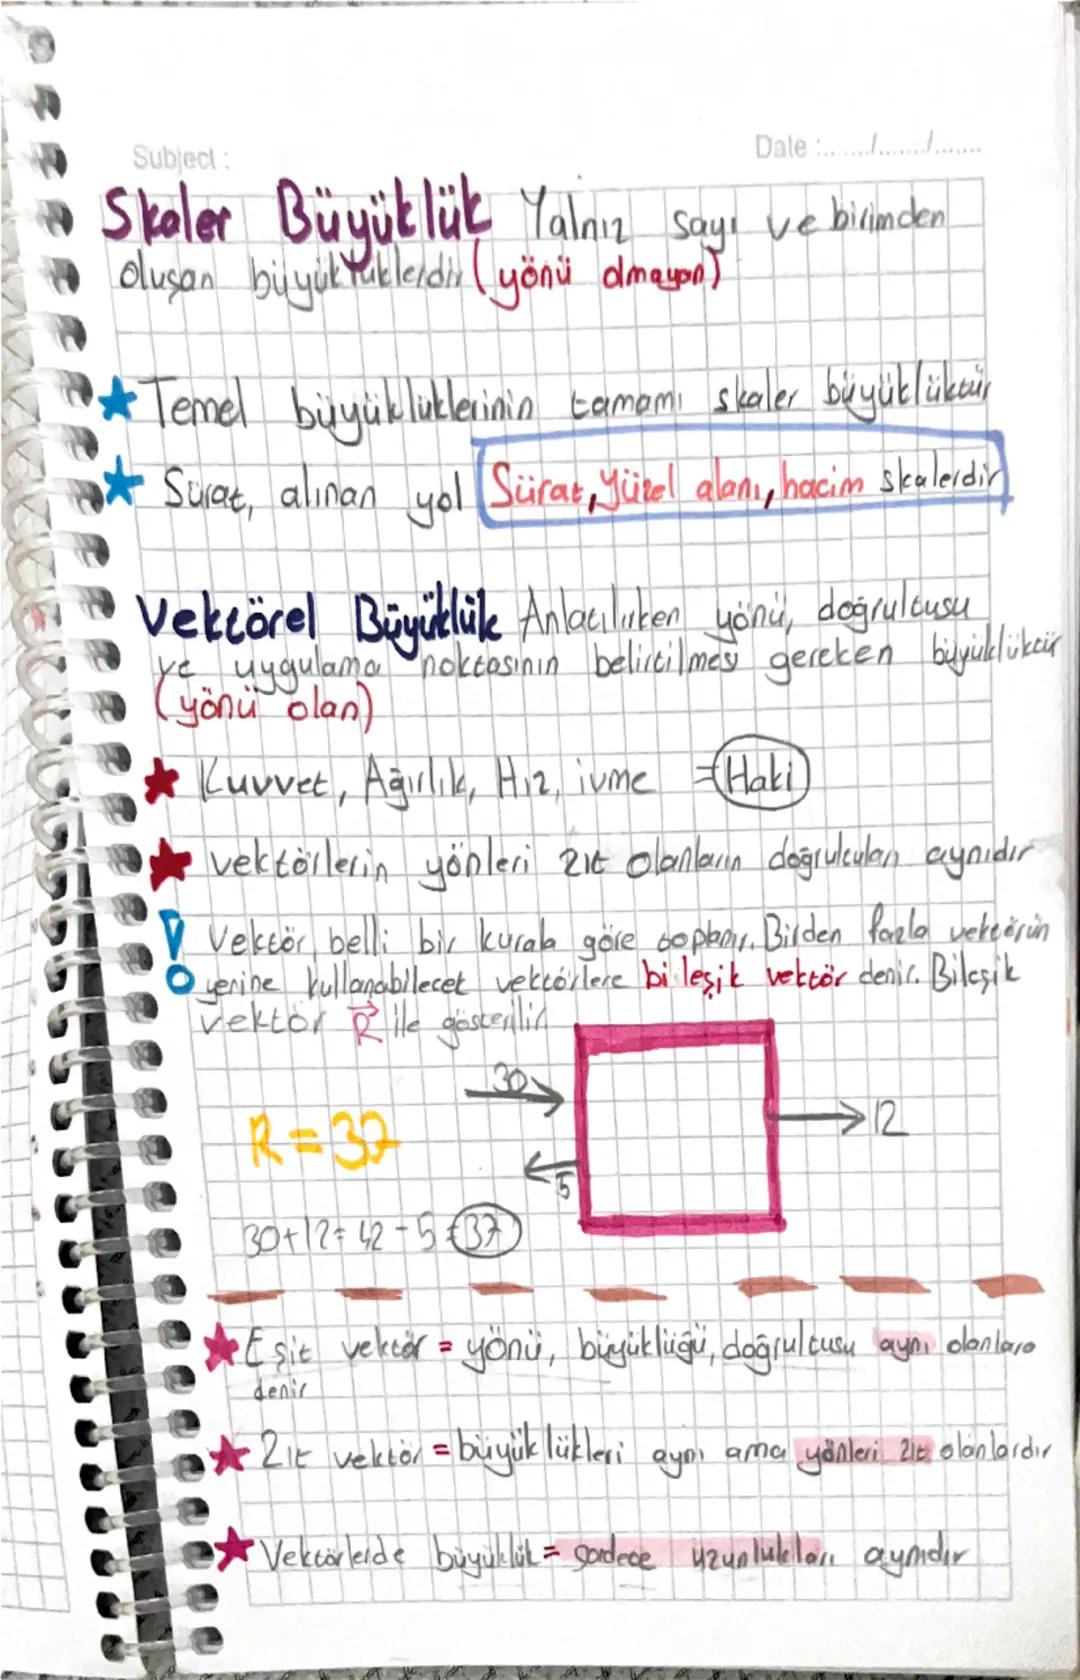 Subject :
Date :......./......./.......
Skaler Büyüklük Yalnız sayı ve birimden
oluşan büyüklüklerdir (yönü olmayan)
Temel büyüklüklerinin tamamı skaler büyüklüktür
Sürat, alınan yol Sürat, yüzel alanı, hacim skalerdir
Vektörel Büyüklük Anlatılırken yönü, doğrultusu
ve uygulama noktasının belirtilmesi gereken büyüklüktür
(yönü olan)
Kuvvet, Ağırlık, Hız, ivme = Haki
vektörlerin yönleri zıt olanların doğrultuları aynıdır
Vektör belli bir kurala göre toplanır. Birden fazla vektörün
yerine kullanabilecet vektörlere bileşik vektör denir. Bileşik
vektör R⃗ ile gösterilir
30
12
R = 37
5
30+12=42-5=37
Eşit vektör = yönü, büyüklüğü, doğrultusu aynı olanlara
denir
Zıt vektör = büyüklükleri aynı ama yönleri zıt olanlardır
Vektörlerde büyüklük = sadece uzunlukları aynıdır